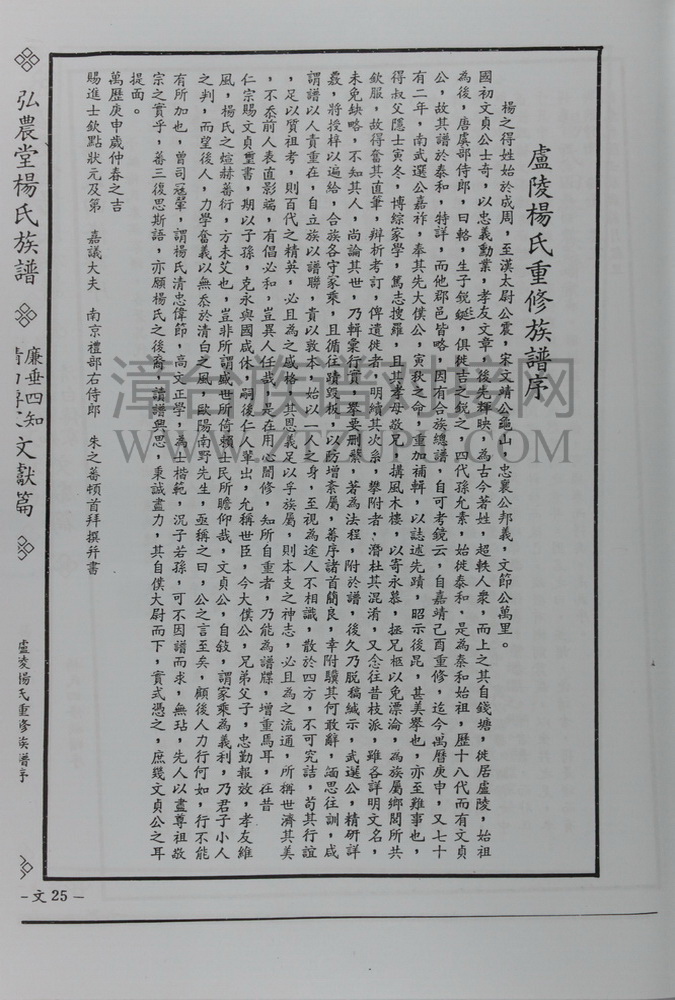 盧陵楊氏重修族譜序
楊之得姓始於成周，至漢太尉公震，宋文靖公龜山，忠襄公邦義，文節公萬里。
國初文貞公士奇，以忠義勳業，孝友文章，後先輝映，為古今著姓，超軼人衆，而上之其自錢塘，徙居盧陵，始祖
為後，唐虞部侍郎，曰輅，生子銳鋋，俱徙吉之銳之，四代孫允素，始徙泰和，是為泰和始祖，歷十八代而有文貞
公，故其譜於泰和，特詳，而他郡邑皆略，因有合族總譜，自可考鏡云，自嘉靖己酉重修，迄今禺曆庚申，又七十
有二年，南武選公嘉祚，奉其先大僕公，寅秋之命，重加補輯，以誌述先蹟，昭示後昆，甚美舉也，亦至難事也，
得叔父隱士寅冬，博綜家學，篤志搜羅，且其孝母敬兄，搆風木樓，以寄永慕，拯兄柩以免漂淪，為族屬鄉閭所共
欽服，故得奮其直筆，辯析考訂，俾遺徙者，明續其次系，攀附者，潛杜其混淆，又念往昔枝派，雖各詳明文名，
未免缺略，不知其人，尚論其世，乃輯彙行實，舉要刪繁，著為法程，附於譜，後久乃脫稿緘示，武選公，精研詳
覈，將授梓以遍給，合族各守家乘，且循往蹟毀板，以防增紊屬，善序諸首簡良，幸附驥其何敢辭，緬思往訓，咸
謂譜以人貴重在，自立族以譜聯，貴以敦本，始以一人之身，至視為途人不相識，散於四方，不可究詰，苟其行誼
，足以質祖考，則百代之精英，必且為之感格，其恩義足以孚族屬，則本支之神志，必且為之流通，所稱世濟其美
，不忝前人表直影端，有倡必和，豈異人任哉，是在用心闇修，知所自重者，乃能為譜牒，增重焉耳，在昔
仁宗賜文貞璽書，期以子孫，克永與國咸休，嗣後仁人輩出，允稱世臣，今大僕公，兄弟父子，忠勤報效，孝友維
風，楊氏之煊赫善衍，方未艾也，豈非所謂盛世所倚賴士民所瞻仰哉，文貞公，自敍，謂家乘為義利，乃君子小人
之判，而望後人，力學奮義以無忝於清白之風，歐陽南野先生，亟稱之曰，公之言至矣，顧後人力行何如，行不能
有所加也，曾司冠鞏，謂楊氏清忠偉節，高文正學，為士楷範，況子若孫，可不因譜而求，無玷，先人以盡尊祖敬
宗之實乎，善三復思斯語，亦願楊氏之後裔，讀譜興思，秉誠盡力，其自僕大尉而下，實式憑之，庶幾文貞公之耳
提面。
萬歷庚申歲仲春之吉
賜進士欽點狀元及第　嘉議大夫　南京禮部右侍郎　朱之蕃頓首拜撰幷書
弘農堂楊氏族譜
廉垂四知
文獻篇
盧陵楊氏重修族譜序
-文 25-
漳台族谱对接网
WWW.ZTZUPU.COM